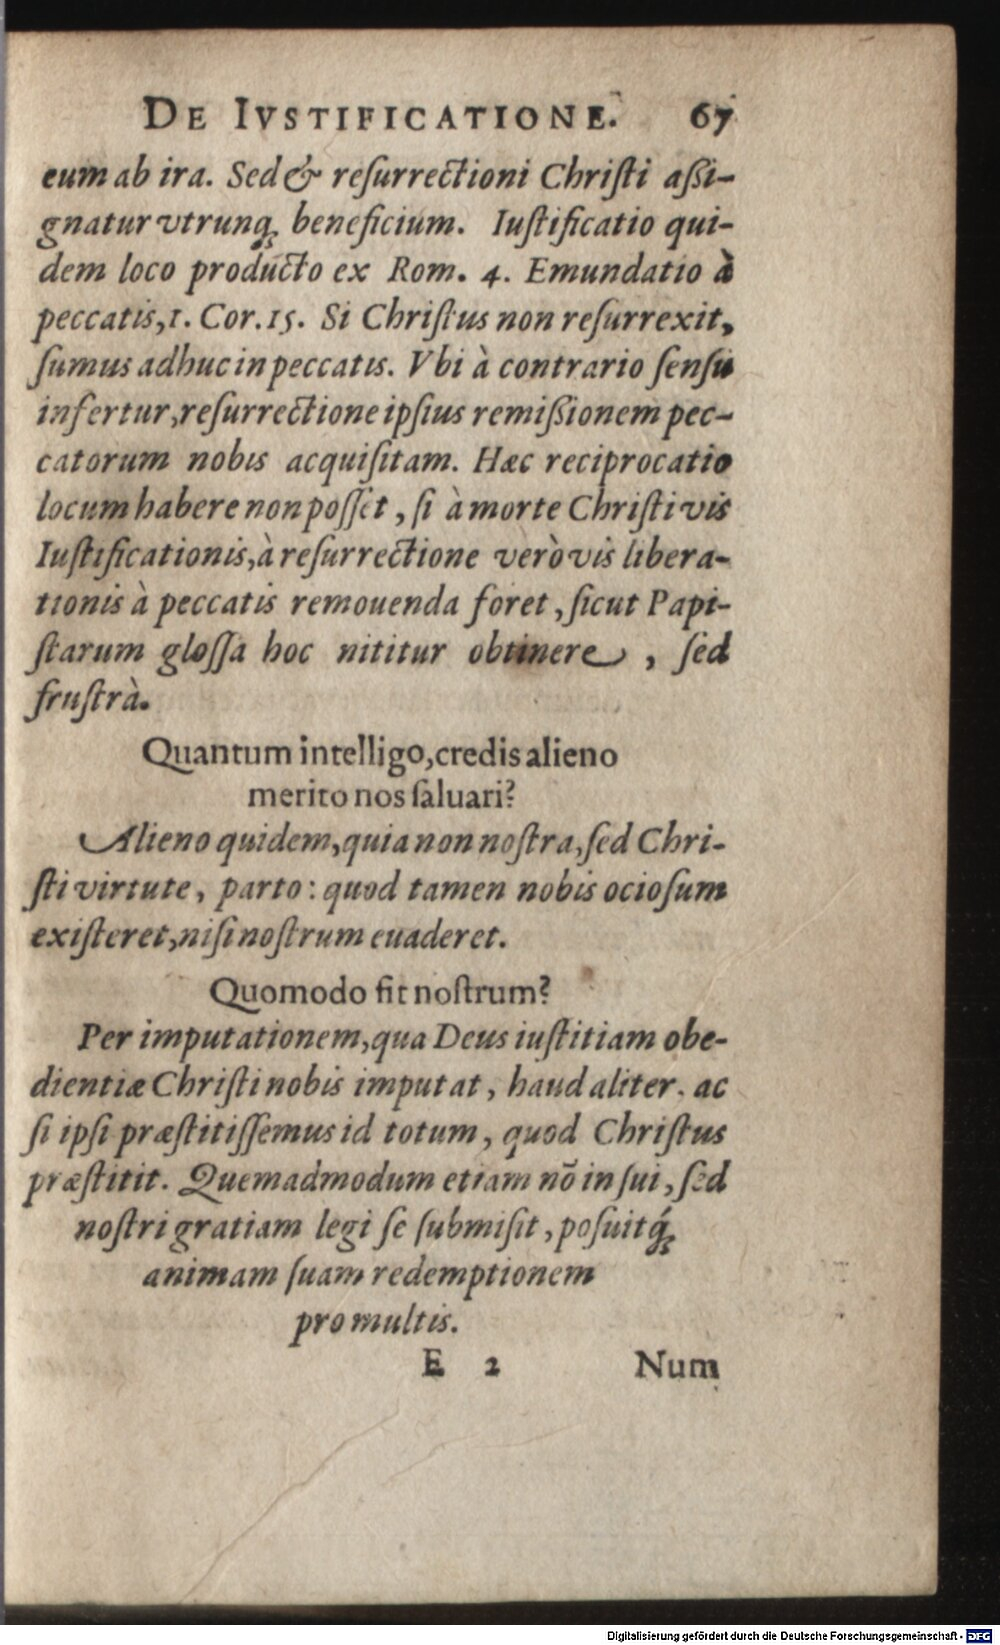 DE IVSTIFICATIONE. 67
eum ab ira. Sed & reſurrectioni Chriſti aßi-
gnatur vtrunq; beneficium. Iuſtificatio qui-
dem loco producto ex Rom. 4. Emundatio à
peccatis, 1. Cor. 15. Si Chriſtus non reſurrexit,
ſumus adhuc in peccatis. Vbi à contrario ſenſu
infertur, reſurrectione ipſius remißionem pec-
catorum nobis acquiſitam. Hæc reciprocatio
locum habere non poſſet, ſi à morte Chriſti vis
Iuſtificationis, à reſurrectione verò vis libera-
tionis à peccatis remouenda foret, ſicut Papi-
ſtarum gloſſa hoc nititur obtinere, ſed
fruſtrà.
Quantum intelligo, credis alieno
merito nos ſaluari?
Alieno quidem, quia non noſtra, ſed Chri-
ſti virtute, parto: quod tamen nobis ocioſum
exiſteret, niſi noſtrum euaderet.
Quomodo fit noſtrum?
Per imputationem, qua Deus iuſtitiam obe-
dientiæ Chriſti nobis imputat, haud aliter, ac
ſi ipſi præſtitiſſemus id totum, quod Chriſtus
præſtitit. Quemadmodum etiam nō in ſui, ſed
noſtri gratiam legi ſe ſubmiſit, poſuitq́;
animam ſuam redemptionem
pro multis.
E 2 Num
Digitalisierung gefördert durch die Deutsche Forschungsgemeinschaft - DFG